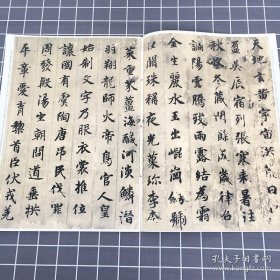 天地玄黄宇宙洪荒日月
盈昃辰宿列張寒来暑往
秋收冬藏閏餘成歲律呂
調陽雲騰致雨露結為霜
金生麗水玉出崑岡劍號
巨闕珠稱夜光菓珎李柰
菜重芥薑海醎河淡鱗潛
羽翔龍師火帝鳥官人皇
始制文字乃服衣裳推位
讓國有虞陶唐弔民伐罪
周發殷湯坐朝問道垂拱
平章愛育黎首臣伏戎羌
孔夫子旧书网